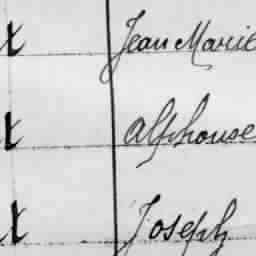 x Jean Marie
x alphonse
x Joseph